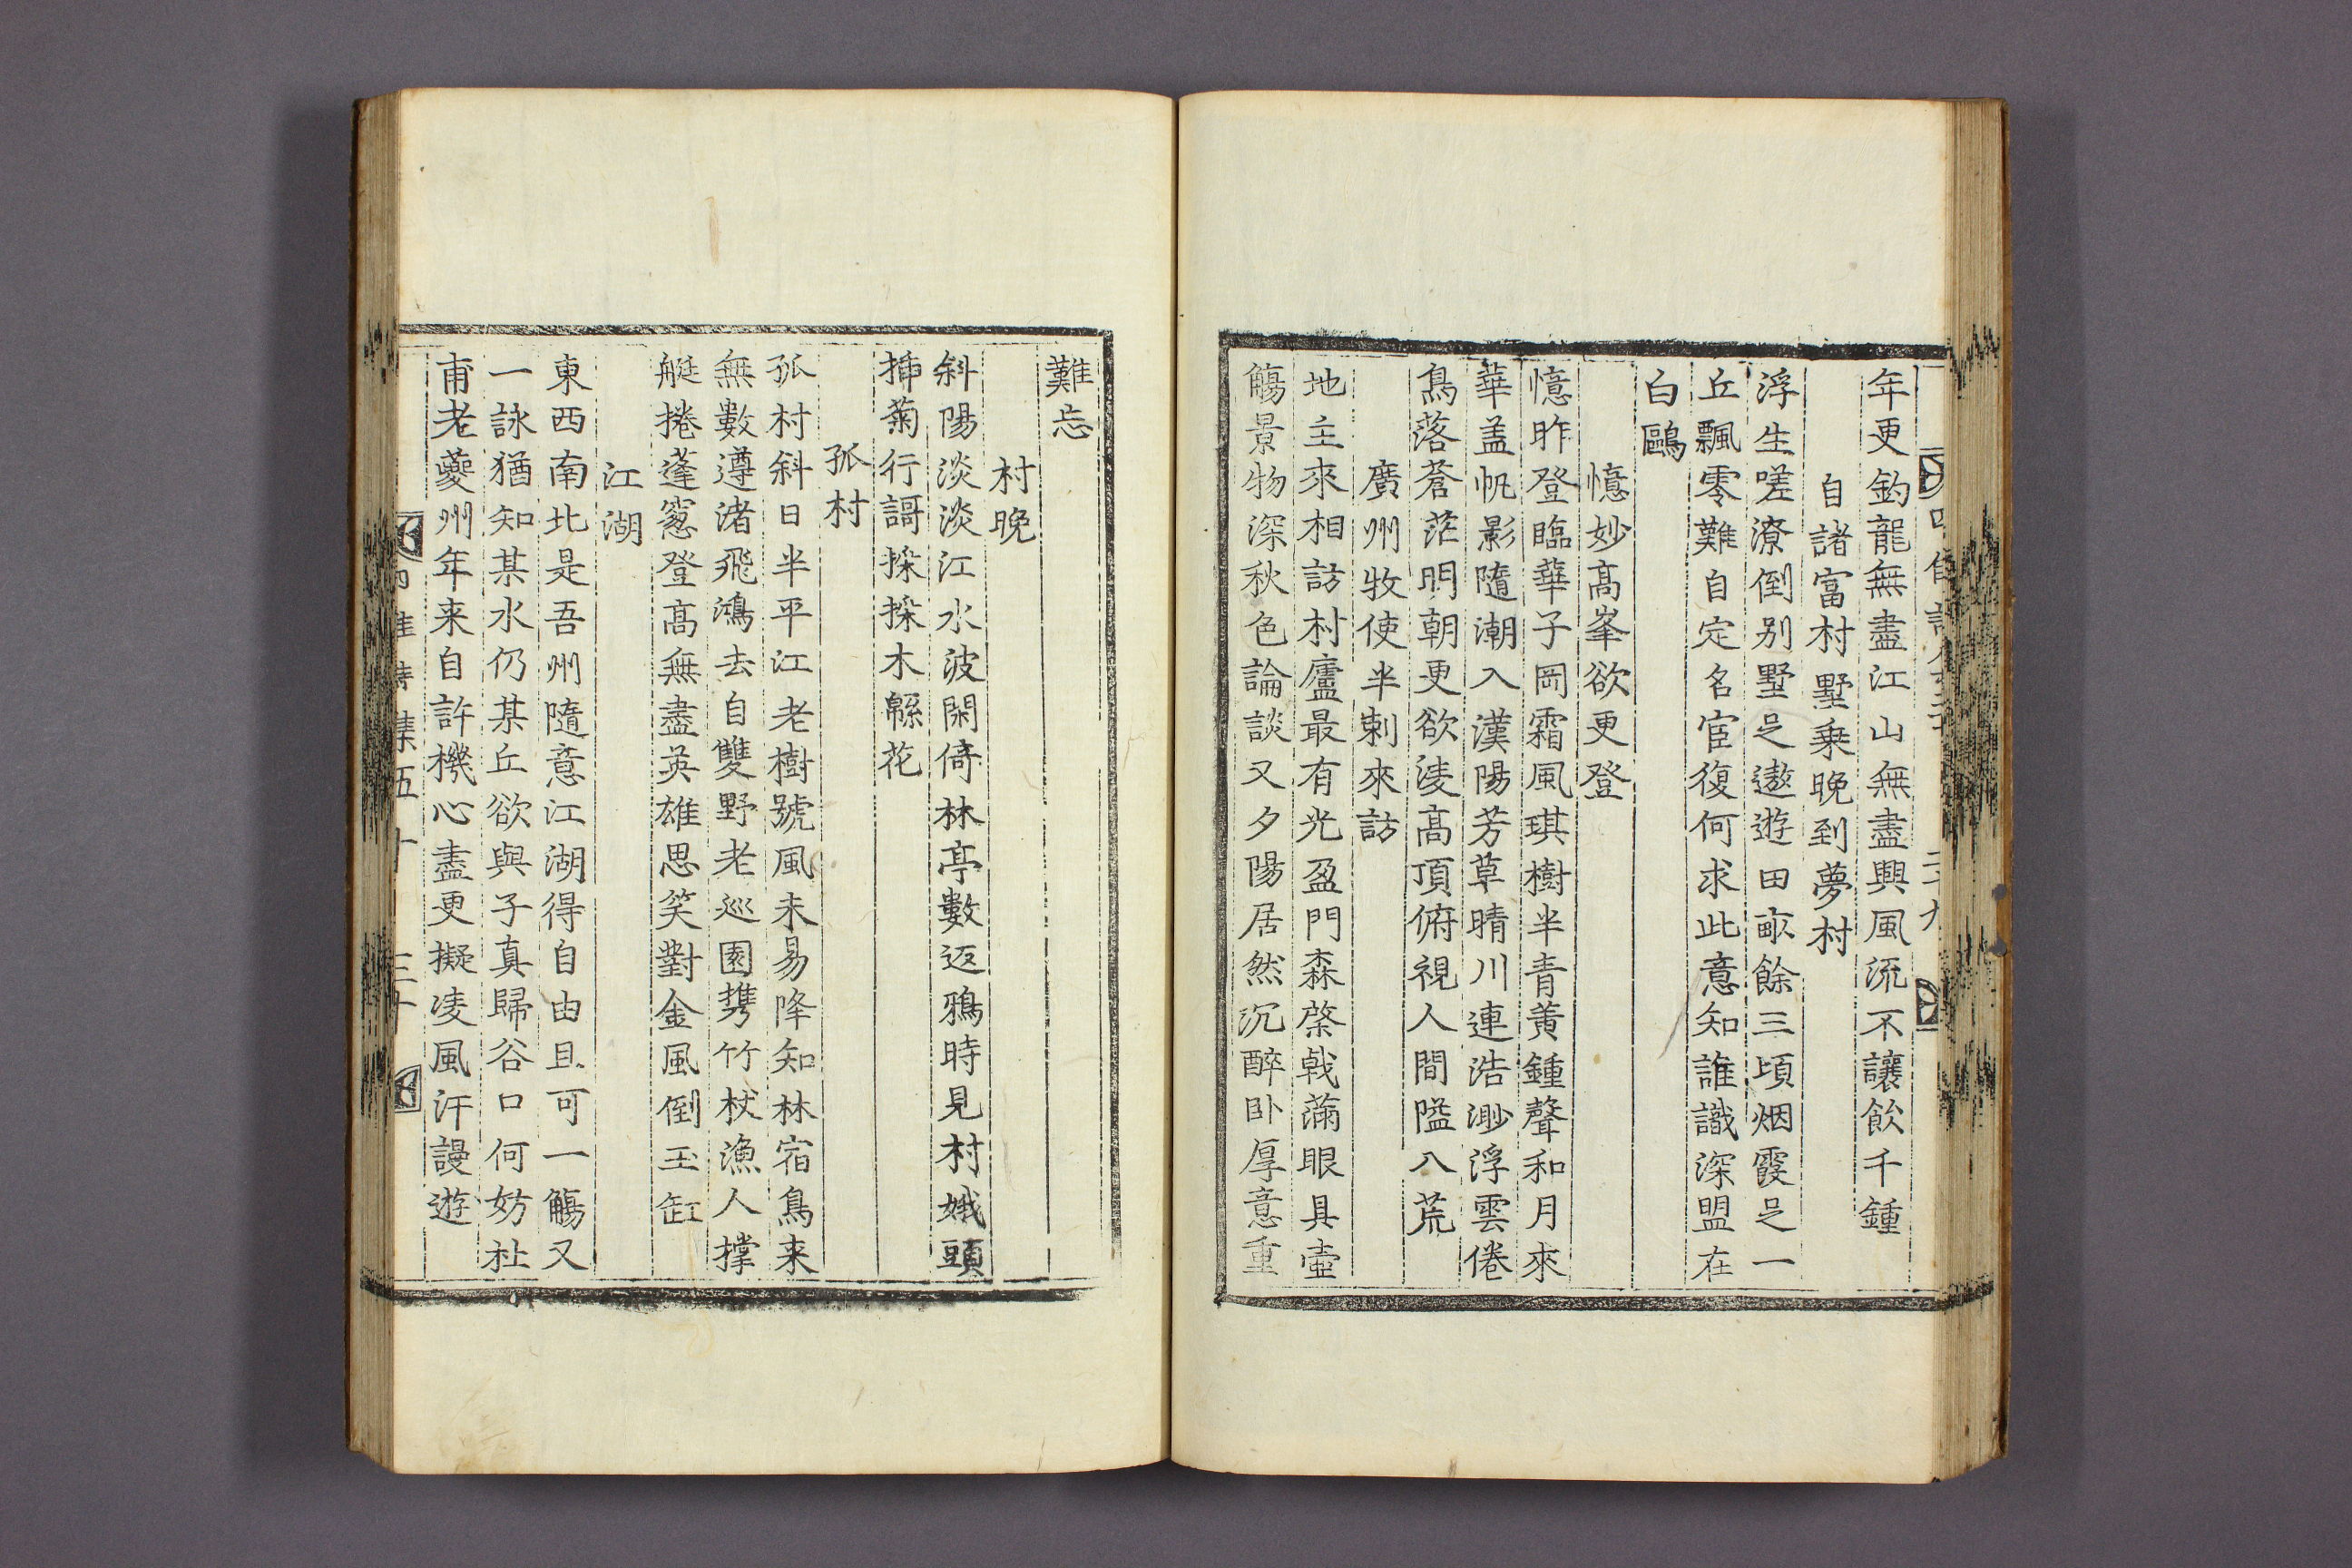 年更釣龍無盡江山無盡興風流不讓飮千鍾
自諸富村墅乗晚到夢村
浮生嗟潦倒别墅足遨遊田畝餘三頃烟霞足一
丘飄零難自定名宦復何求此意知誰識深盟在
白鷗
憶妙髙峯欲更登
憶昨登臨華子岡霜風琪樹半青黄鍾聲和月來
華盖帆影隨潮入漢陽芳草晴川連浩渺浮雲倦
鳥落蒼茫明朝更欲淩髙頂俯視人間隘八荒
廣州牧使半刺來訪
地主來相訪村廬最有光盈門森棨戟滿眼具壷
觴景物深秋色論談又夕陽居然沉醉卧厚意重
難忘
村晚
斜陽淡淡江水波閑倚林亭數返鴉時見村娥頭
揷菊行謌採採木緜花
孤村
孤村斜日半平江老樹號風未易降知林宿鳥来
無數遵渚飛鴻去自雙野老巡園携竹杖漁人撑
艇捲蓬窓登髙無盡英雄思笑對金風倒玉缸
江湖
東西南北是吾州隨意江湖得自由且可一觴又
一詠猶知某水仍某丘欲與子真歸谷口何妨社
甫老夔州年来自許機心盡更擬凌風汗謾遊
集五十 三十